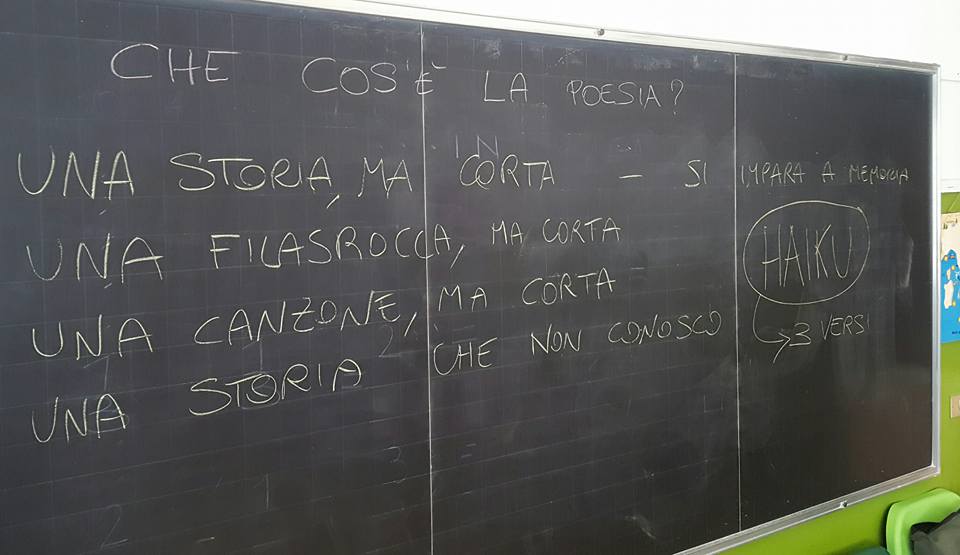 CHE COS'È LA POESIA?
IN
UNA STORIA, MA CORTA – SI IMPARA A MEMORIA
UNA FILASROCCA, MA CORTA
UNA CANZONE, MA CORTA
UNA STORIA CHE NON CONOSCO
HAIKU
→ 3 VERSI